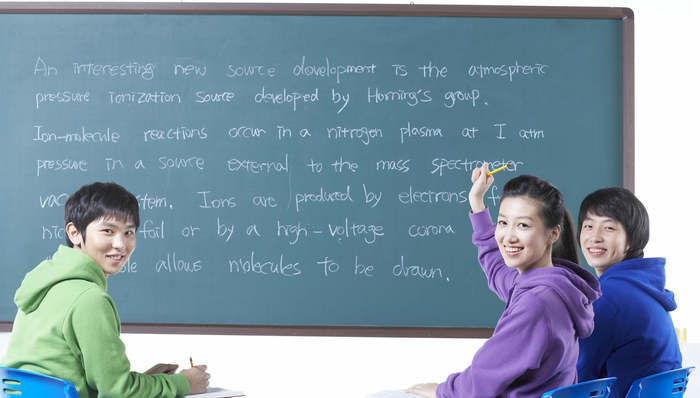 An interesting new source development is the atmospheric
pressure ionization source developed by Horning's group.
Ion-molecule reactions occur in a nitrogen plasma at 1 atm
pressure in a source external to the mass spectrometer
Ions are produced by electrons
foil or by a high-voltage corona
allows molecules to be drawn.